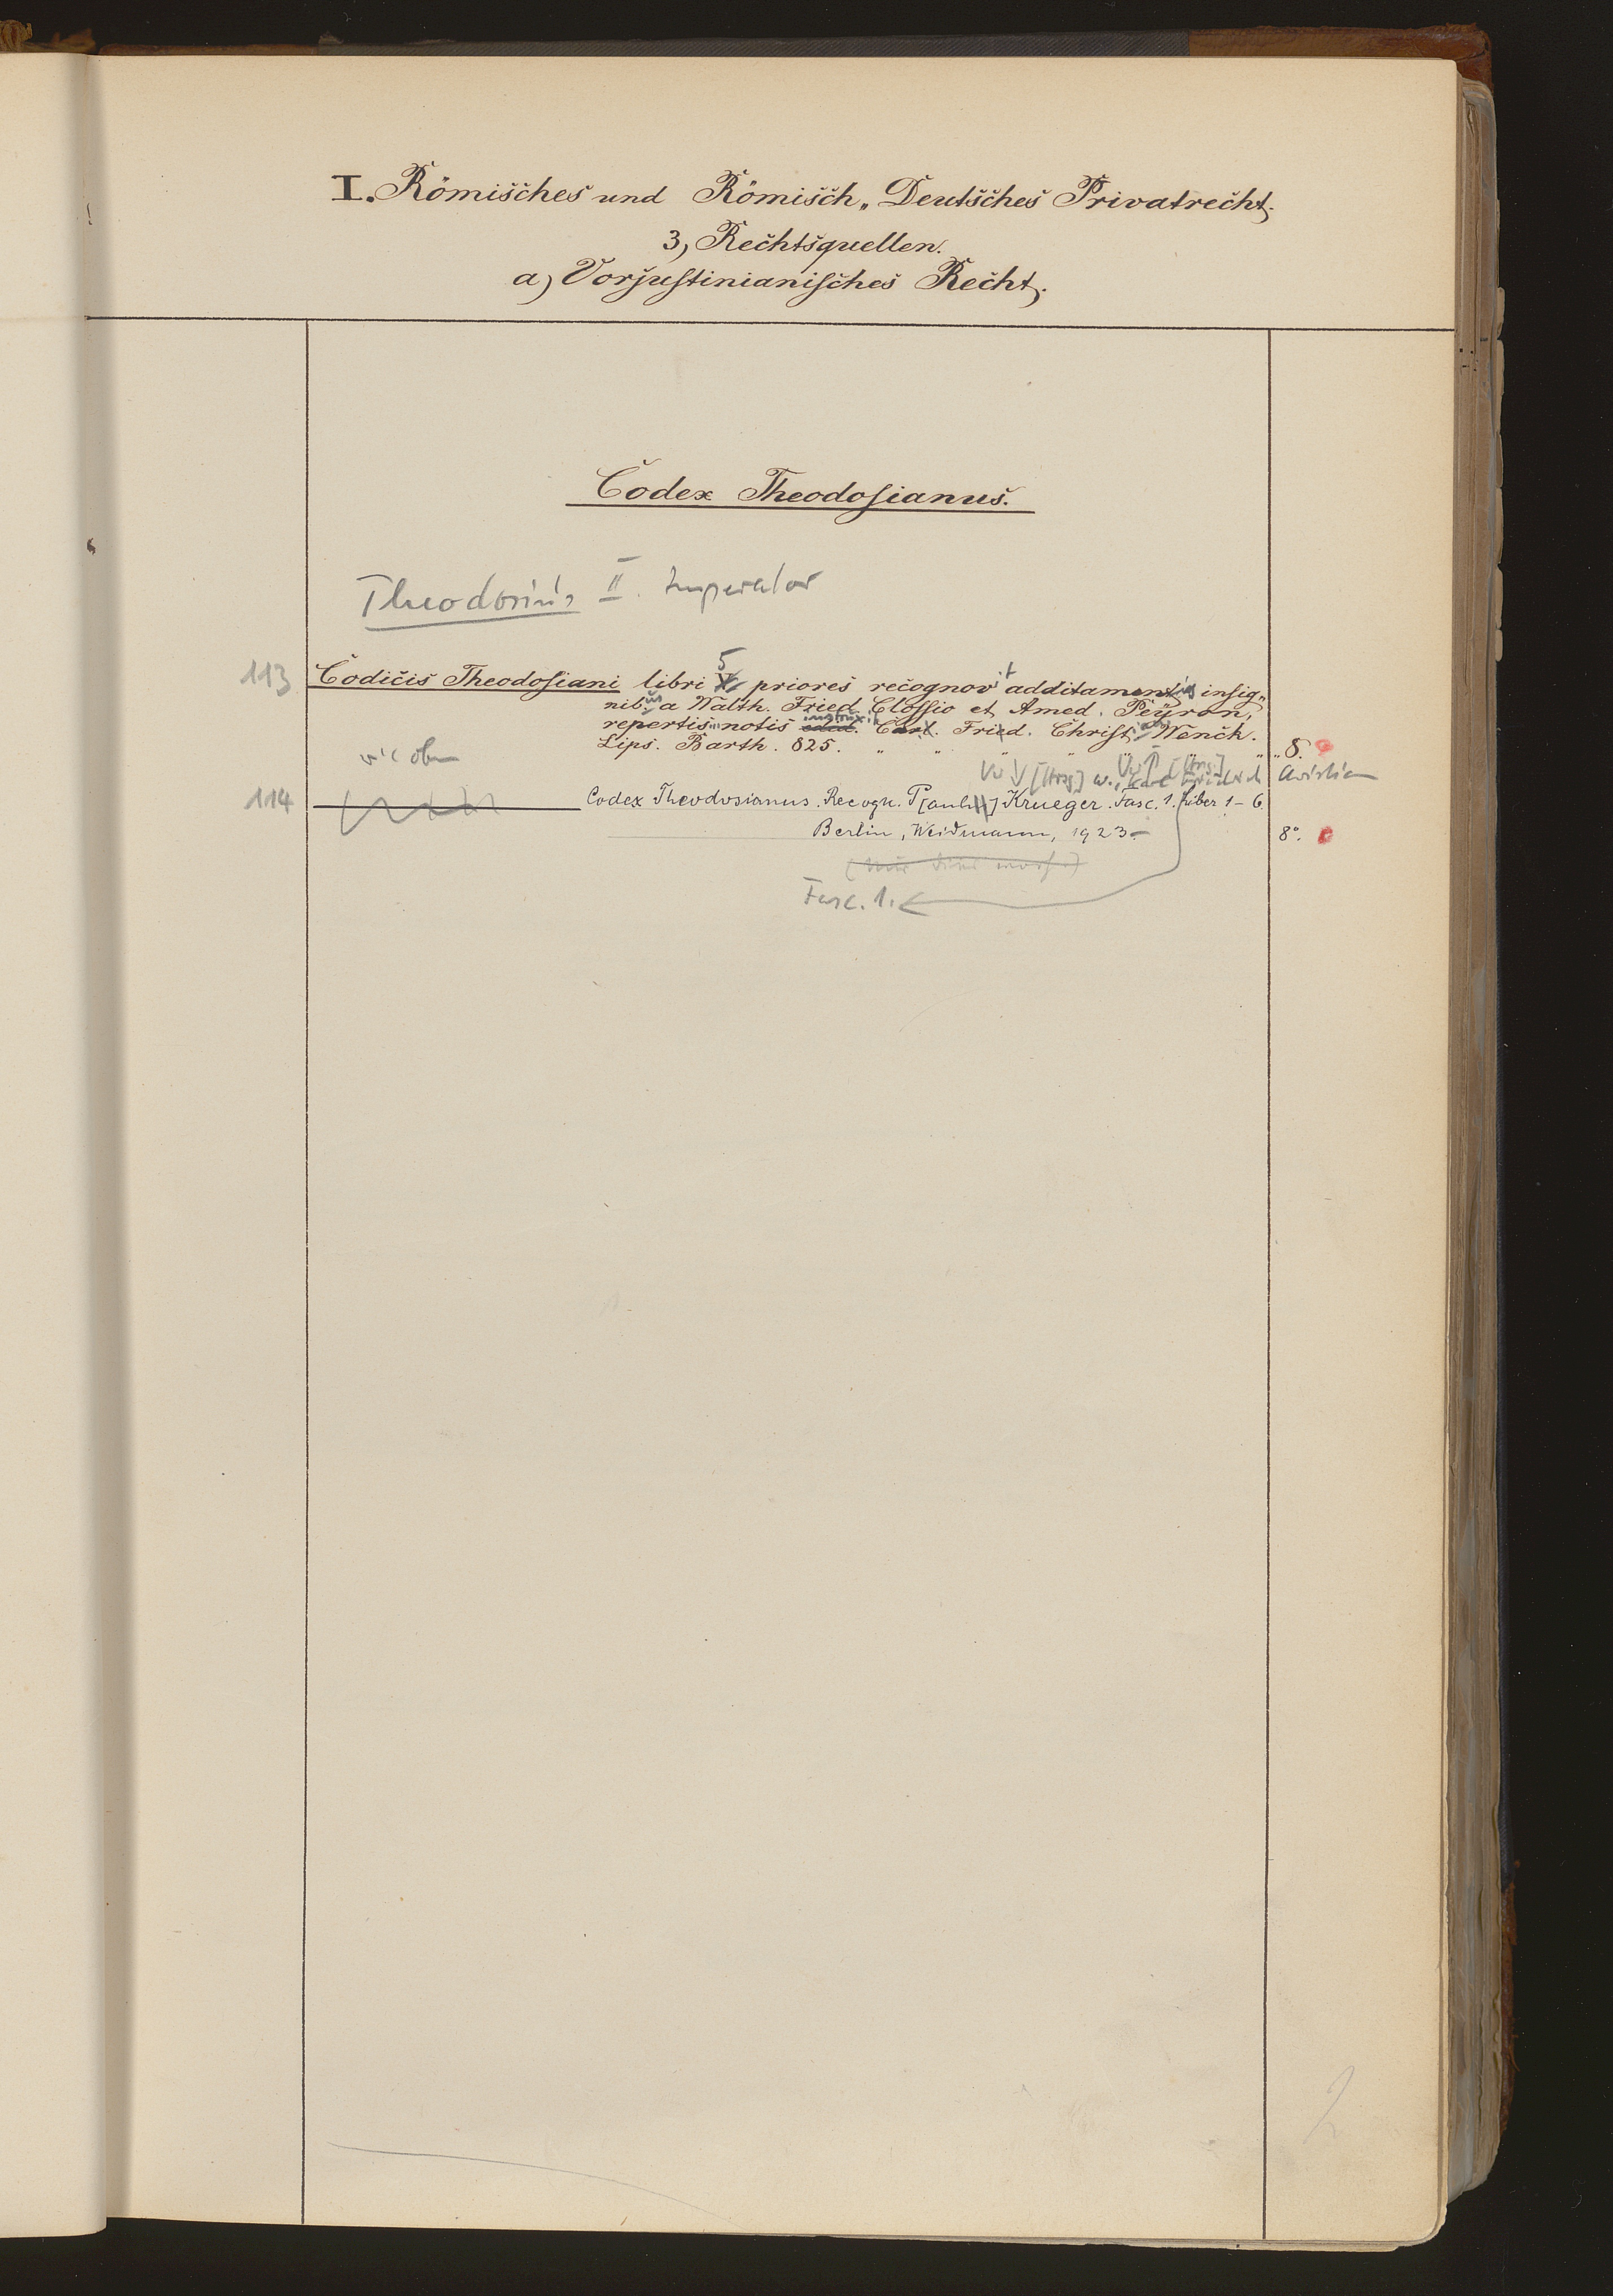 I. Römisches und Römisch-Deutsches Privatrecht.
3, Rechtsquellen.
a) Vorjustinianisches Recht.
Codex Theodosianus.
Theodosius II. Imperator
113 Codicis Theodosiani libri 5 priores recognovit additamentis insig-
nibus a Walth. Fried. Clossio et Amed. Peyron,
repertis notis instruxit Car. Frid. Christianus Wenck.
Lips. Barth. 825. " " " " " " 8.
wie oben
Vw ↓ [Hrsg.] W., Karl Friedrich Christian
Vw ↑ [Hrsg.]
114 Codex Theodosianus. Recogn. P[aul] Krueger. Fasc. 1. Liber 1-6
Berlin, Weidmann, 1923- 8°.
Fasc. 1.